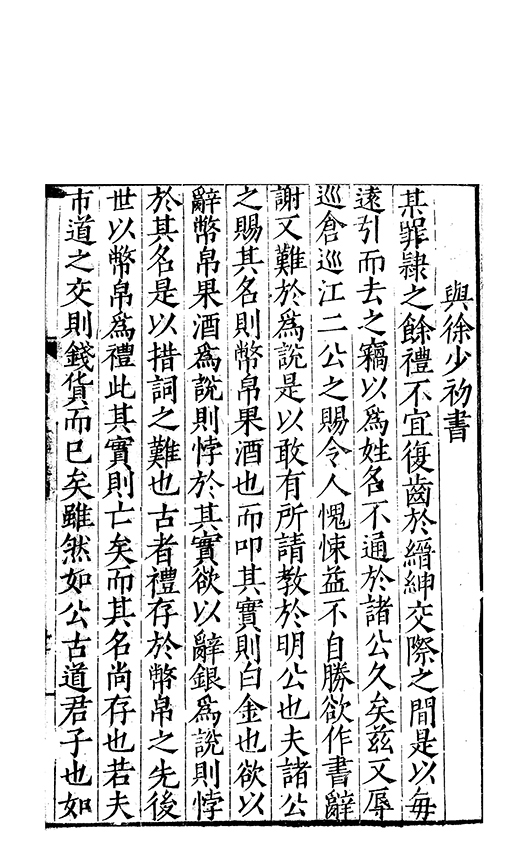 與徐少初書
某罪隷之餘禮不宜復齒於縉紳交際之間是以每
遠引而去之竊以爲姓名不通於諸公久矣兹又辱
巡倉巡江二公之賜令人愧悚益不自勝欲作書辭
謝又難於爲說是以敢有所請教於明公也夫諸公
之賜其名則幣帛果酒也而叩其實則白金也欲以
辭幣帛果酒爲說則悖於其實欲以辭銀爲說則悖
於其名是以措詞之難也古者禮存於幣帛之先後
世以幣帛爲禮此其實則亡矣而其名尚存也若夫
市道之交則錢貨而已矣雖然如公古道君子也如